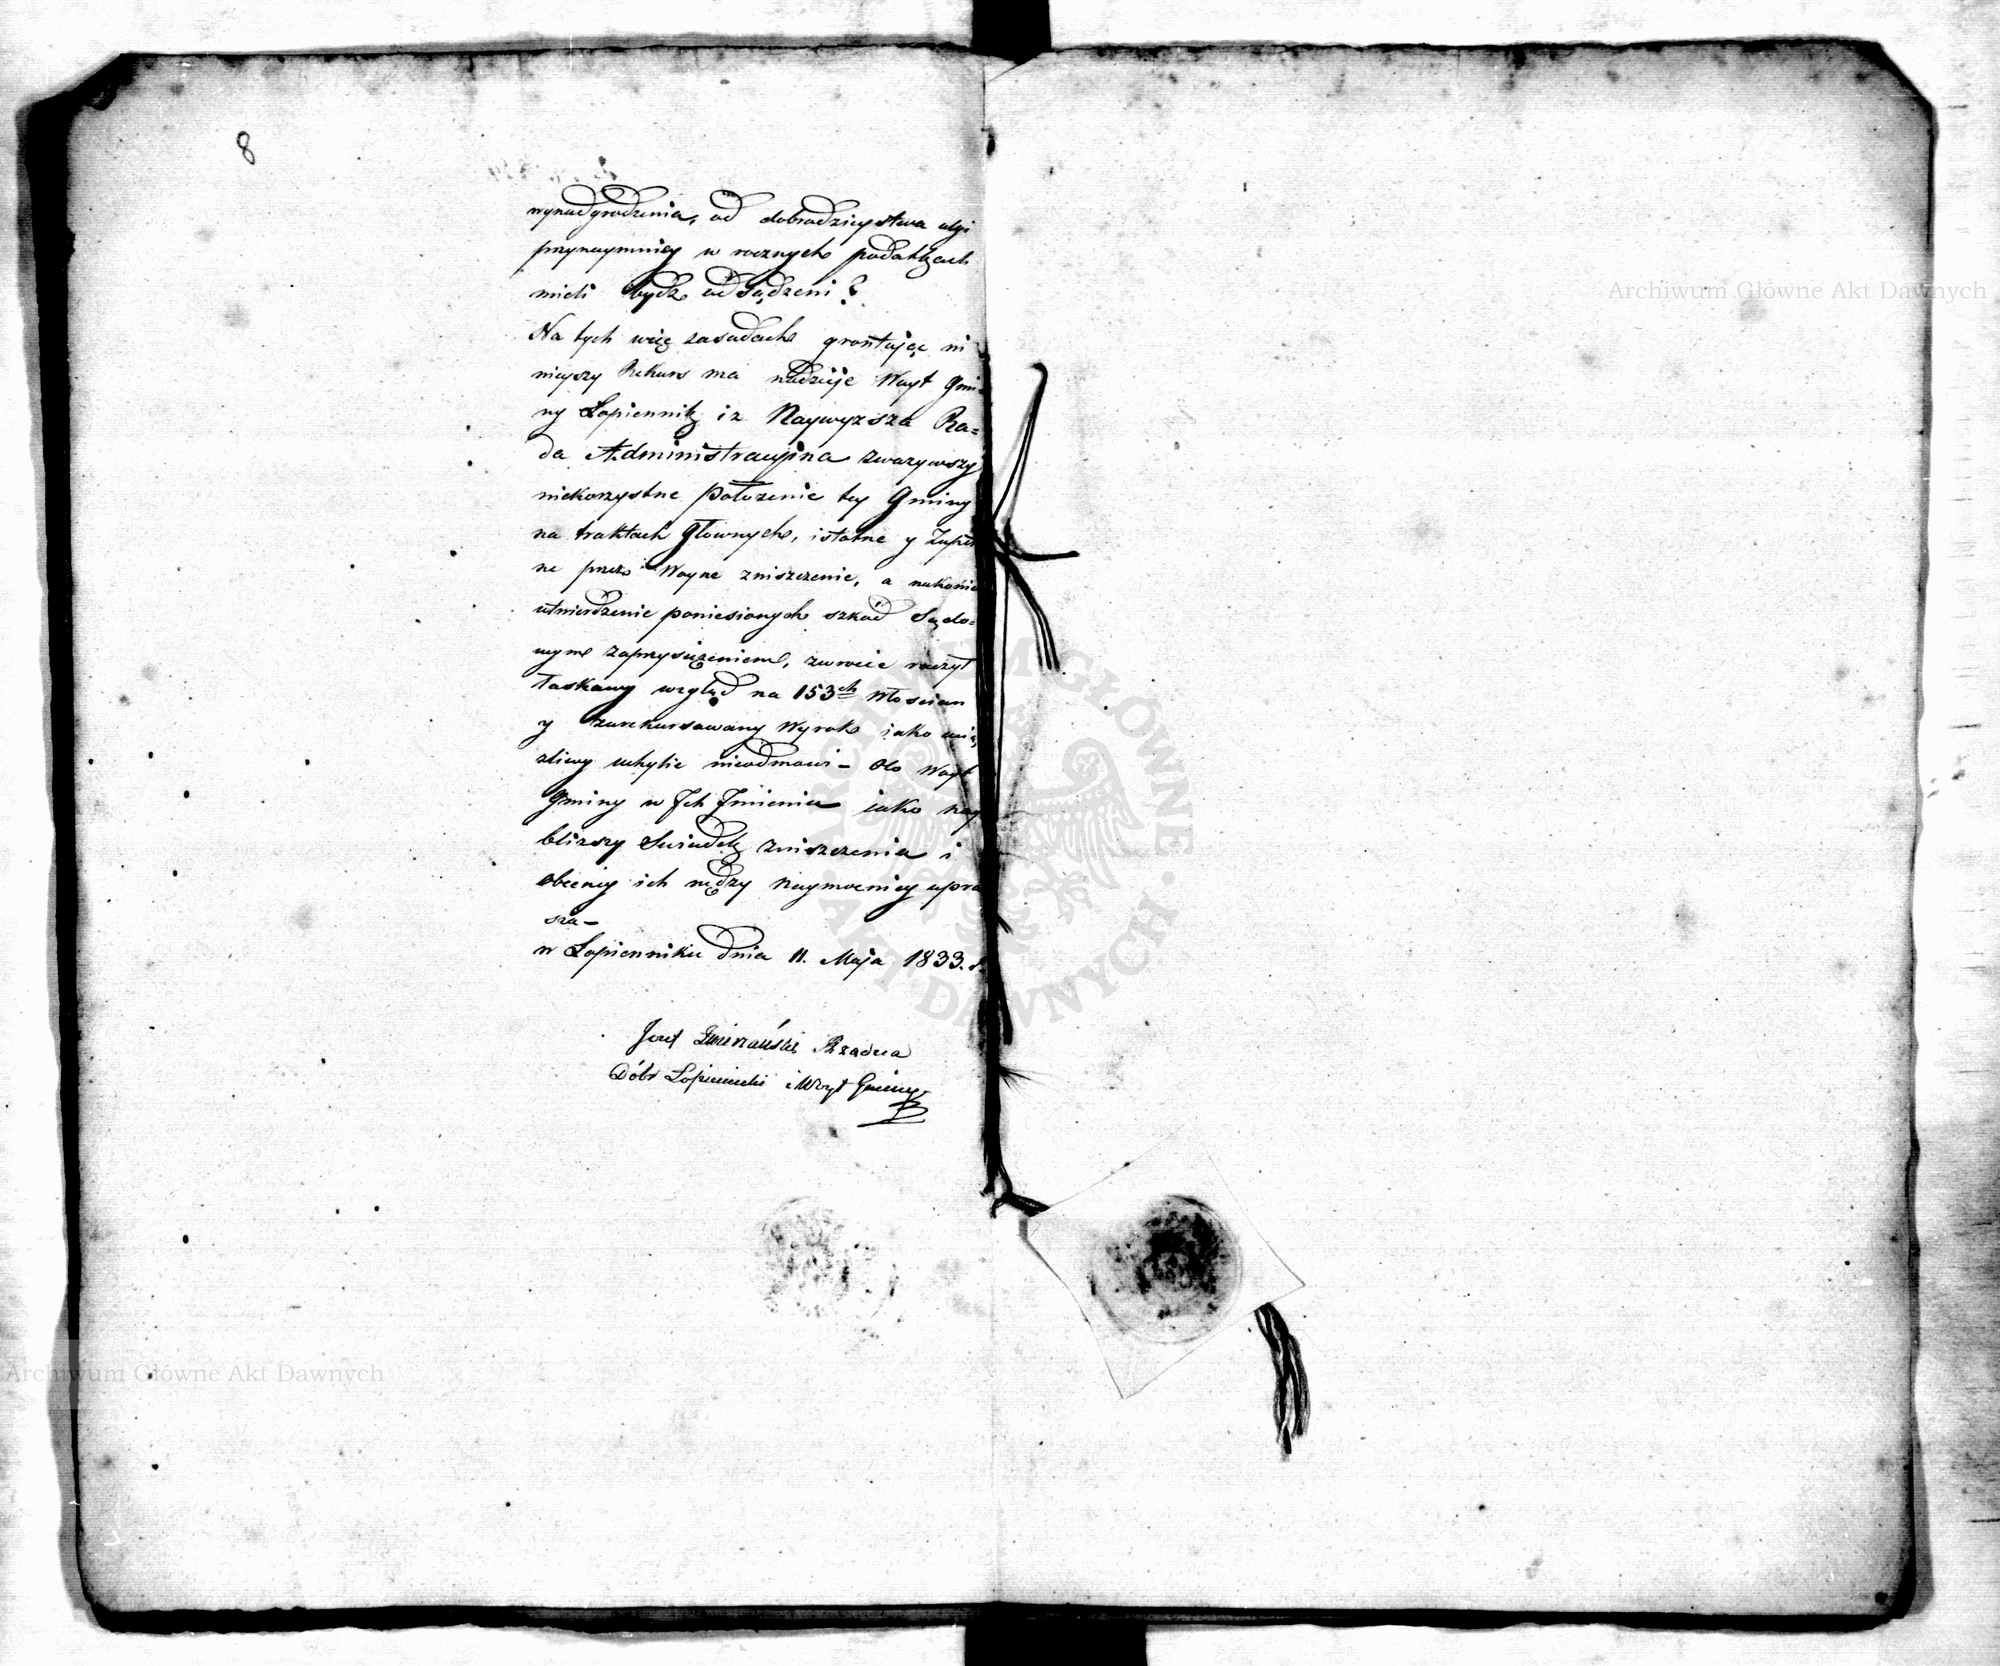 8
wynadgrodzenia, od dobrodzieystwa ulgi
przynaymniey w rocznych podatkach
mieli bydz odsądzeni?
Na tych więc zasadach grontując ni
nieyszy Rekurs ma nadzieje Woyt Gmi-
ny Łopiennik iz Naywyzsza Ra=
da Administracyina zwazywszy
niekorzystne Położenie tey Gminy
na traktach Głownych, istotne y Zupeł
ne przez Woyne zniszczenie, a nakonie
utwierdzenie poniesionych szkod Sądo=
wym zaprzysiężeniem, zwrocic raczył
łaskawy wzgląd na 153ch Włoscian
y zarekursowany Wyrok iako
zliwy uchylic nieodmowi- Oto Woyt
Gminy w Ich Imieniu iako nay
blizszy Swiadek zniszczenia i
obecney ich nędzy naymocniey upra
sza-
w Łopienniku dnia 11. Maja 1833. r.
Jozef Rządca
Dóbr Łopiennik i Woyt Gminy
Archiwum Główne Akt Dawnych
Archiwum Główne Akt Dawnych
ARCHIWUM GŁÓWNE
AKT DAWNYCH